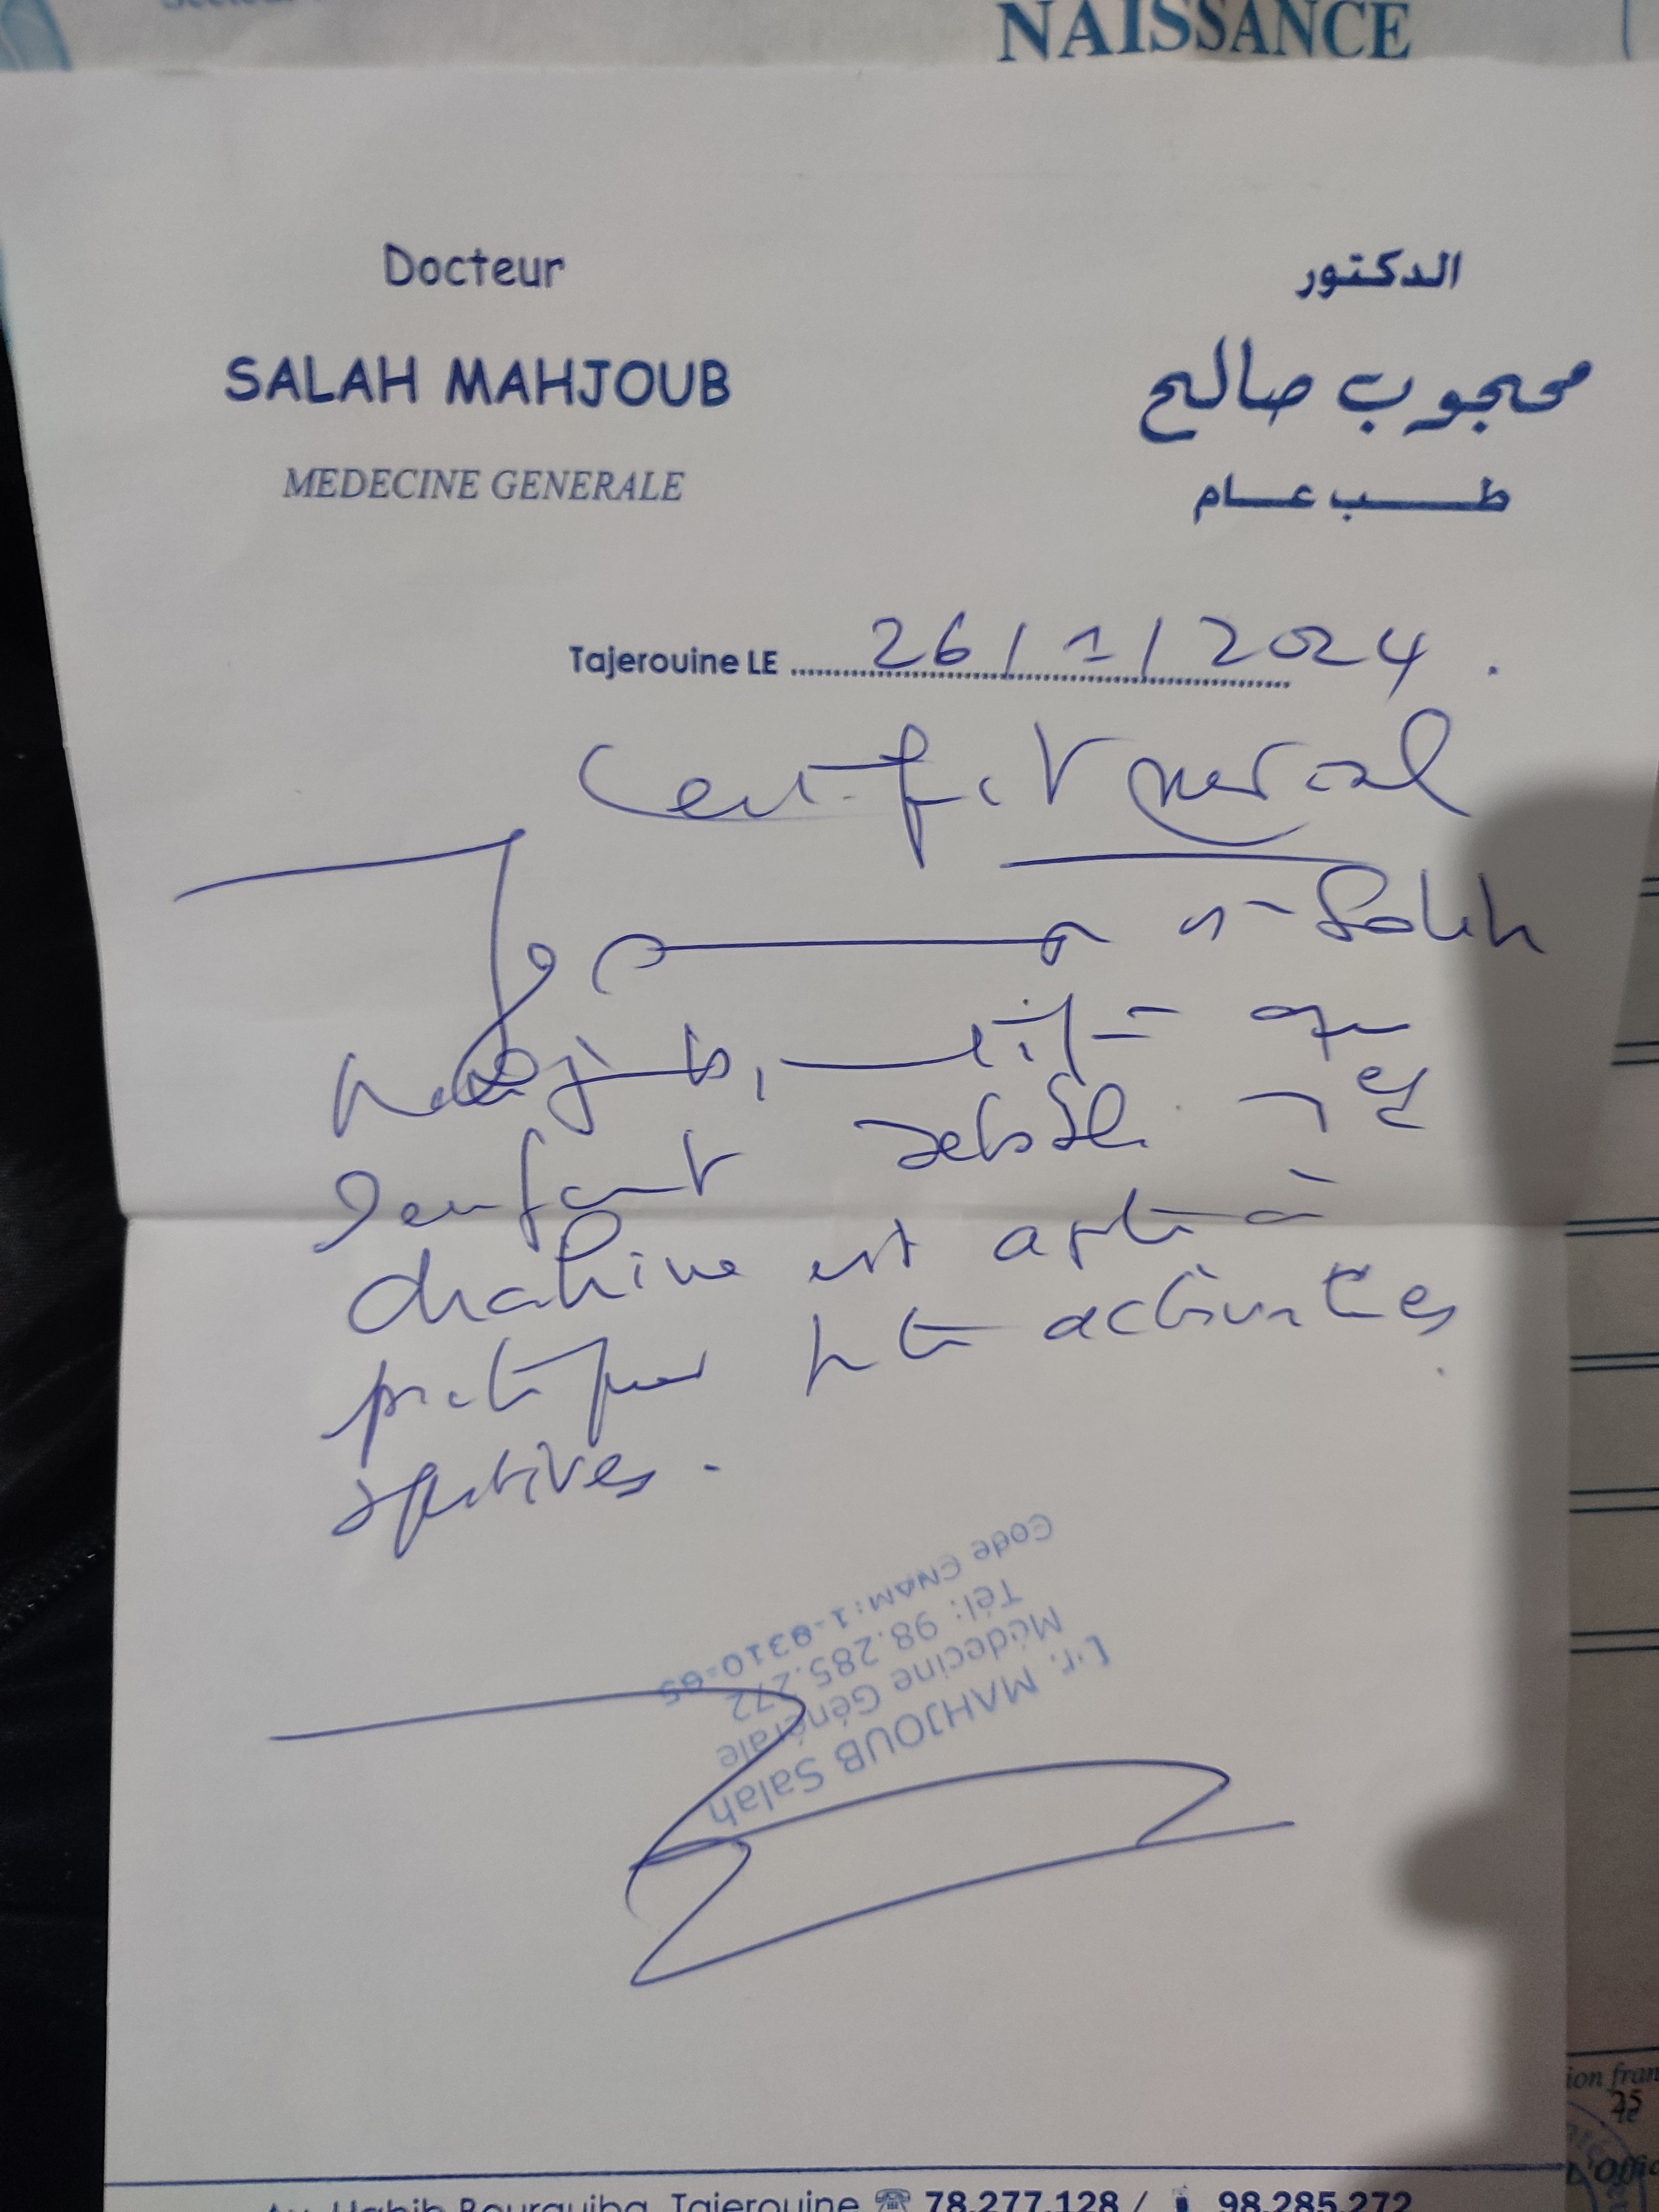 NAISSANCE
Docteur
الدكتور
SALAH MAHJOUB
محجوب صالح
MEDECINE GENERALE
طب عام
Tajerouine LE 26/1/2024.
Certificat medical
Je Salah
Mahjoub, certifie que
l'enfant
chahine est apte à
pratiquer activités
sportives.
Code CNAM: 1-9310-65
Tél: 98.285.272
Médecine Générale
Dr. MAHJOUB Salah
ion fran
25
le
Av. Habib Bourguiba Tajerouine ☎ 78.277.128 / 98.285.272